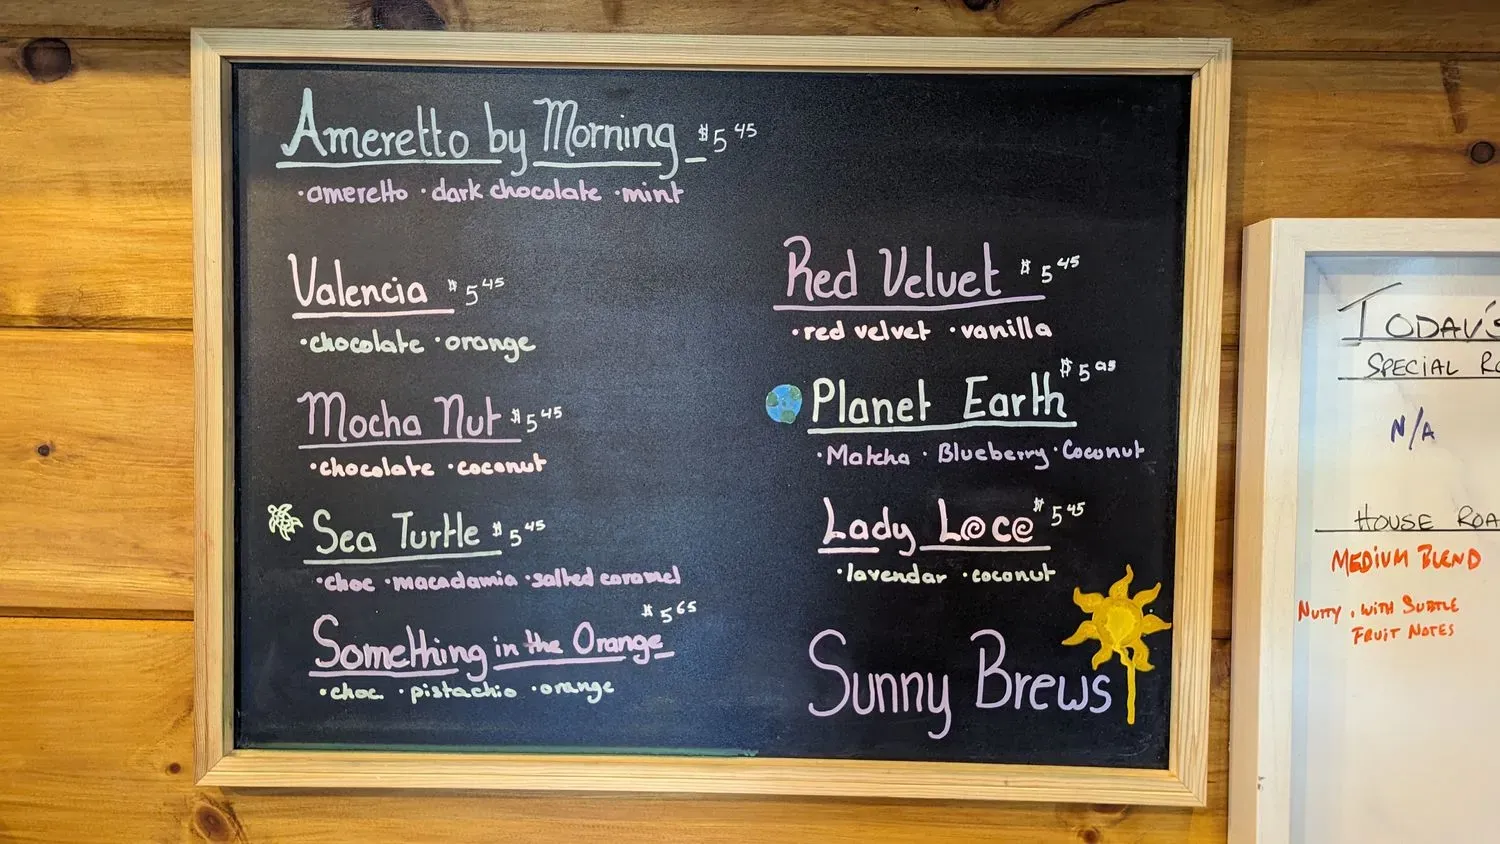 Ameretto by Morning $5.45
·ameretto ·dark chocolate ·mint
Valencia $5.45
·chocolate ·orange
Mocha Nut $5.45
·chocolate ·coconut
Sea Turtle $5.45
·choc ·macadamia ·salted caramel
Something in the Orange $5.65
·choc ·pistachio ·orange
Red Velvet $5.45
·red velvet ·vanilla
Planet Earth $5.95
·Matcha ·Blueberry ·Coconut
Lady Loco $5.45
·lavendar ·coconut
Sunny Brews
TODAY'S
SPECIAL
N/A
HOUSE
MEDIUM BLEND
NUTTY, WITH SUBTLE
FRUIT NOTES